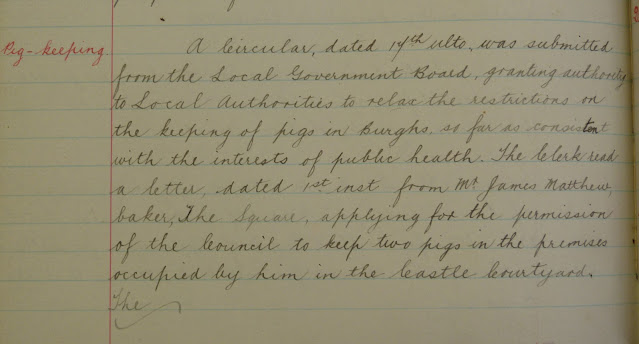 Pig-keeping
A Circular, dated 14th ulto, was submitted
from the Local Government Board, granting authority
to Local Authorities to relax the restrictions on
the keeping of pigs in Burghs, so far as consistent
with the interests of public health. The Clerk read
a letter, dated 1st inst from Mr James Matthew,
baker, The Square, applying for the permission
of the Council to keep two pigs in the premises
occupied by him in the Castle Courtyard.
The